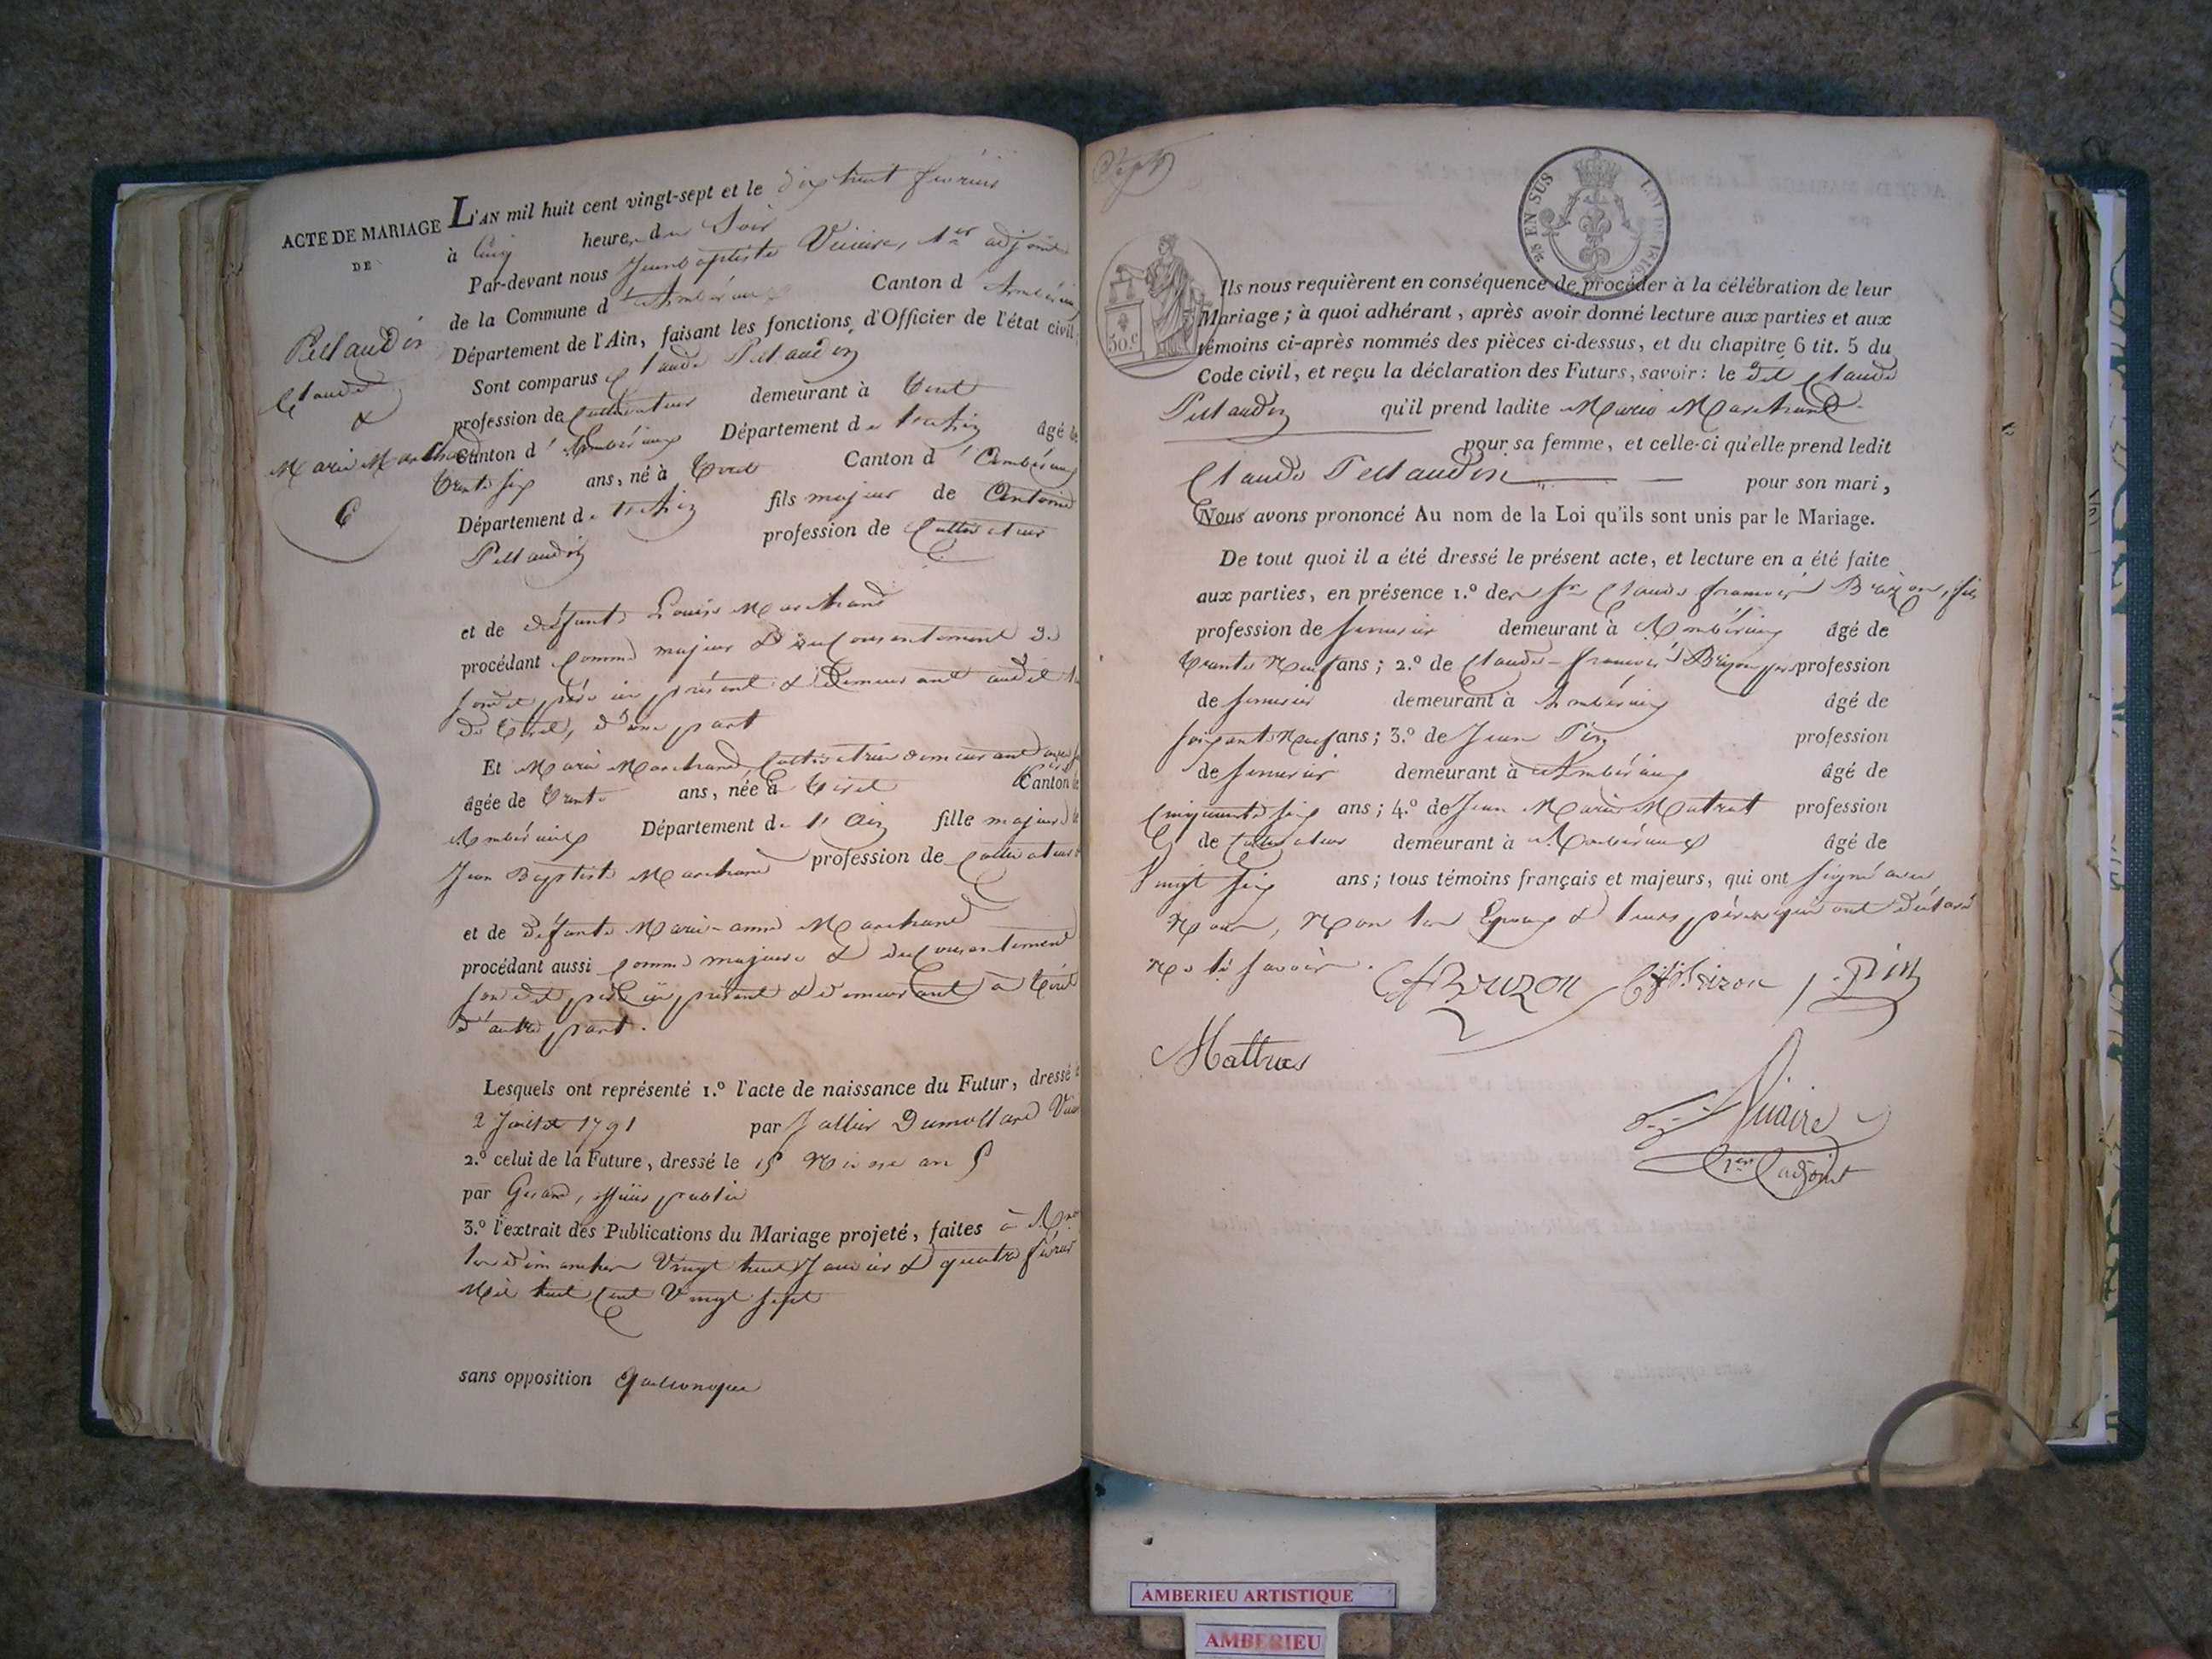 ACTE DE MARIAGE
DE
Pellaudin
Claude
&
Marie Marchand
6
L'AN mil huit cent vingt-sept et le dix huit février
à Cinq heures du Soir
Par-devant nous Jean baptiste Vicaire, 1er adjoint
de la Commune d'Ambérieux Canton d'Ambérieux
Département de l'Ain, faisant les fonctions d'Officier de l'état civil
Sont comparus Claude Pellaudin
profession de Cultivateur demeurant à Tiret
Canton d'Ambérieux Département de l'Ain âgé de
trente six ans, né à Tiret Canton d'Ambérieux
Département de l'Ain fils majeur de Antoine
Pellaudin profession de Cultivateur
et de défunte Louise Marchand
procédant comme majeur & du Consentement de
son dit père ici présent & demeurant audit
de Tiret, d'une part
Et Marie Marchand, Cultivatrice demeurant avec
âgée de trente ans, née à Tiret Canton de
Ambérieux Département de l'Ain fille majeure de
Jean Baptiste Marchand profession de Cultivateur
et de défunte Marie-anne Marchand
procédant aussi comme majeure & du Consentement
son dit père ici présent & demeurant à Tiret
d'autre part.
Lesquels ont représenté 1.º l'acte de naissance du Futur, dressé
2 Juillet 1791 par Jallier Dumollard
2.º celui de la Future, dressé le 15 Nivose an 5
par Gerard, officier public
3.º l'extrait des Publications du Mariage projeté, faites à
les dimanches Vingt huit Janvier & quatre février
Mil huit Cent Vingt Sept
sans opposition quelconque
Sept
EN SUS
30.c
Ils nous requièrent en conséquence de procéder à la célébration de leur
Mariage ; à quoi adhérant, après avoir donné lecture aux parties et aux
témoins ci-après nommés des pièces ci-dessus, et du chapitre 6 tit. 5 du
Code civil, et reçu la déclaration des Futurs, savoir : le dit Claude
Pellaudin qu'il prend ladite Marie Marchand
pour sa femme, et celle-ci qu'elle prend ledit
Claude Pellaudin pour son mari,
Nous avons prononcé Au nom de la Loi qu'ils sont unis par le Mariage.
De tout quoi il a été dressé le présent acte, et lecture en a été faite
aux parties, en présence 1.º de Sr Claude françois Brizon, fils
profession de Serrurier demeurant à Ambérieux âgé de
trente Neuf ans ; 2.º de Claude-françois Brizon père profession
de Serrurier demeurant à Ambérieux âgé de
soixante Neuf ans ; 3.º de Jean Pin profession
de Serrurier demeurant à Ambérieux âgé de
Cinquante six ans ; 4.º de Jean Marie Matrat profession
de Cultivateur demeurant à Ambérieux âgé de
Vingt six ans ; tous témoins français et majeurs, qui ont signé avec
Nous, Non les Epoux & leurs pères qui ont déclaré
Ne le savoir.
Brizon Brizon J. Pin
Vicaire
1er adjoint
AMBERIEU ARTISTIQUE
AMBERIEU